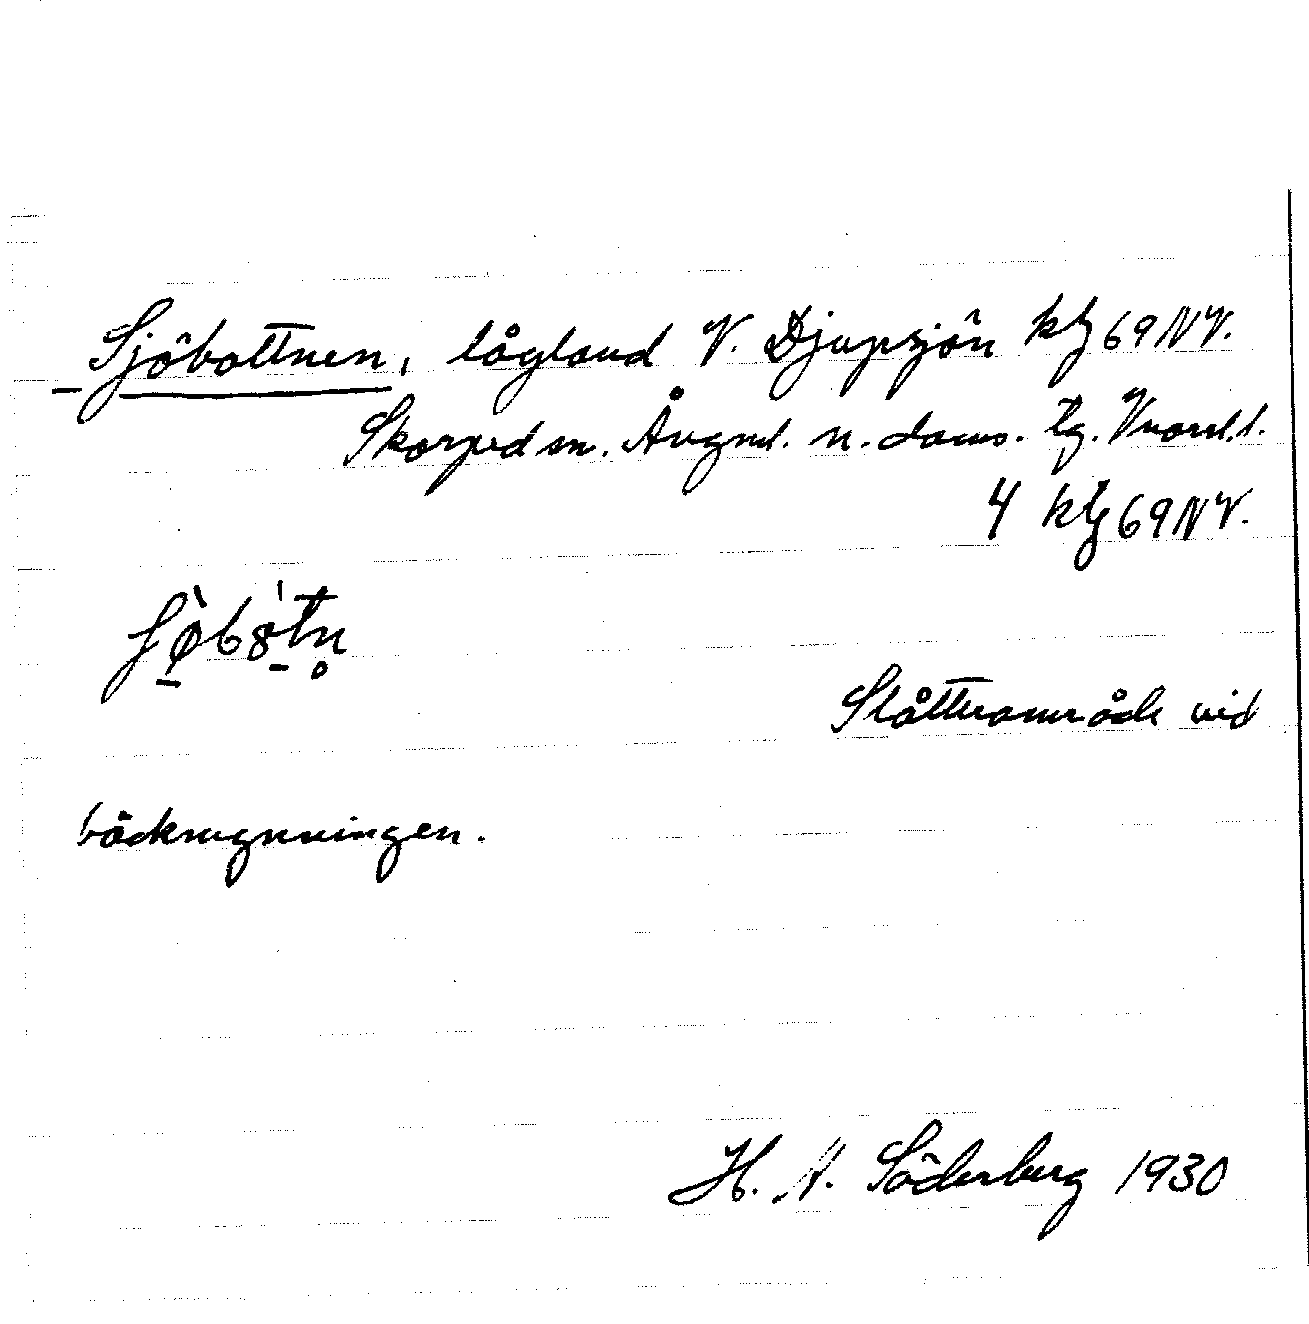 Sjöbottnen, lågland V. Djupsjön ktg 69 NV.
Skorped sn. Ångml. n. doms. tg. Vnorrl. l.
4 ktg 69 NV.
ʃø̀bòtn̥
Slåtterområde vid
bäckmynningen.
H. A. Söderberg 1930